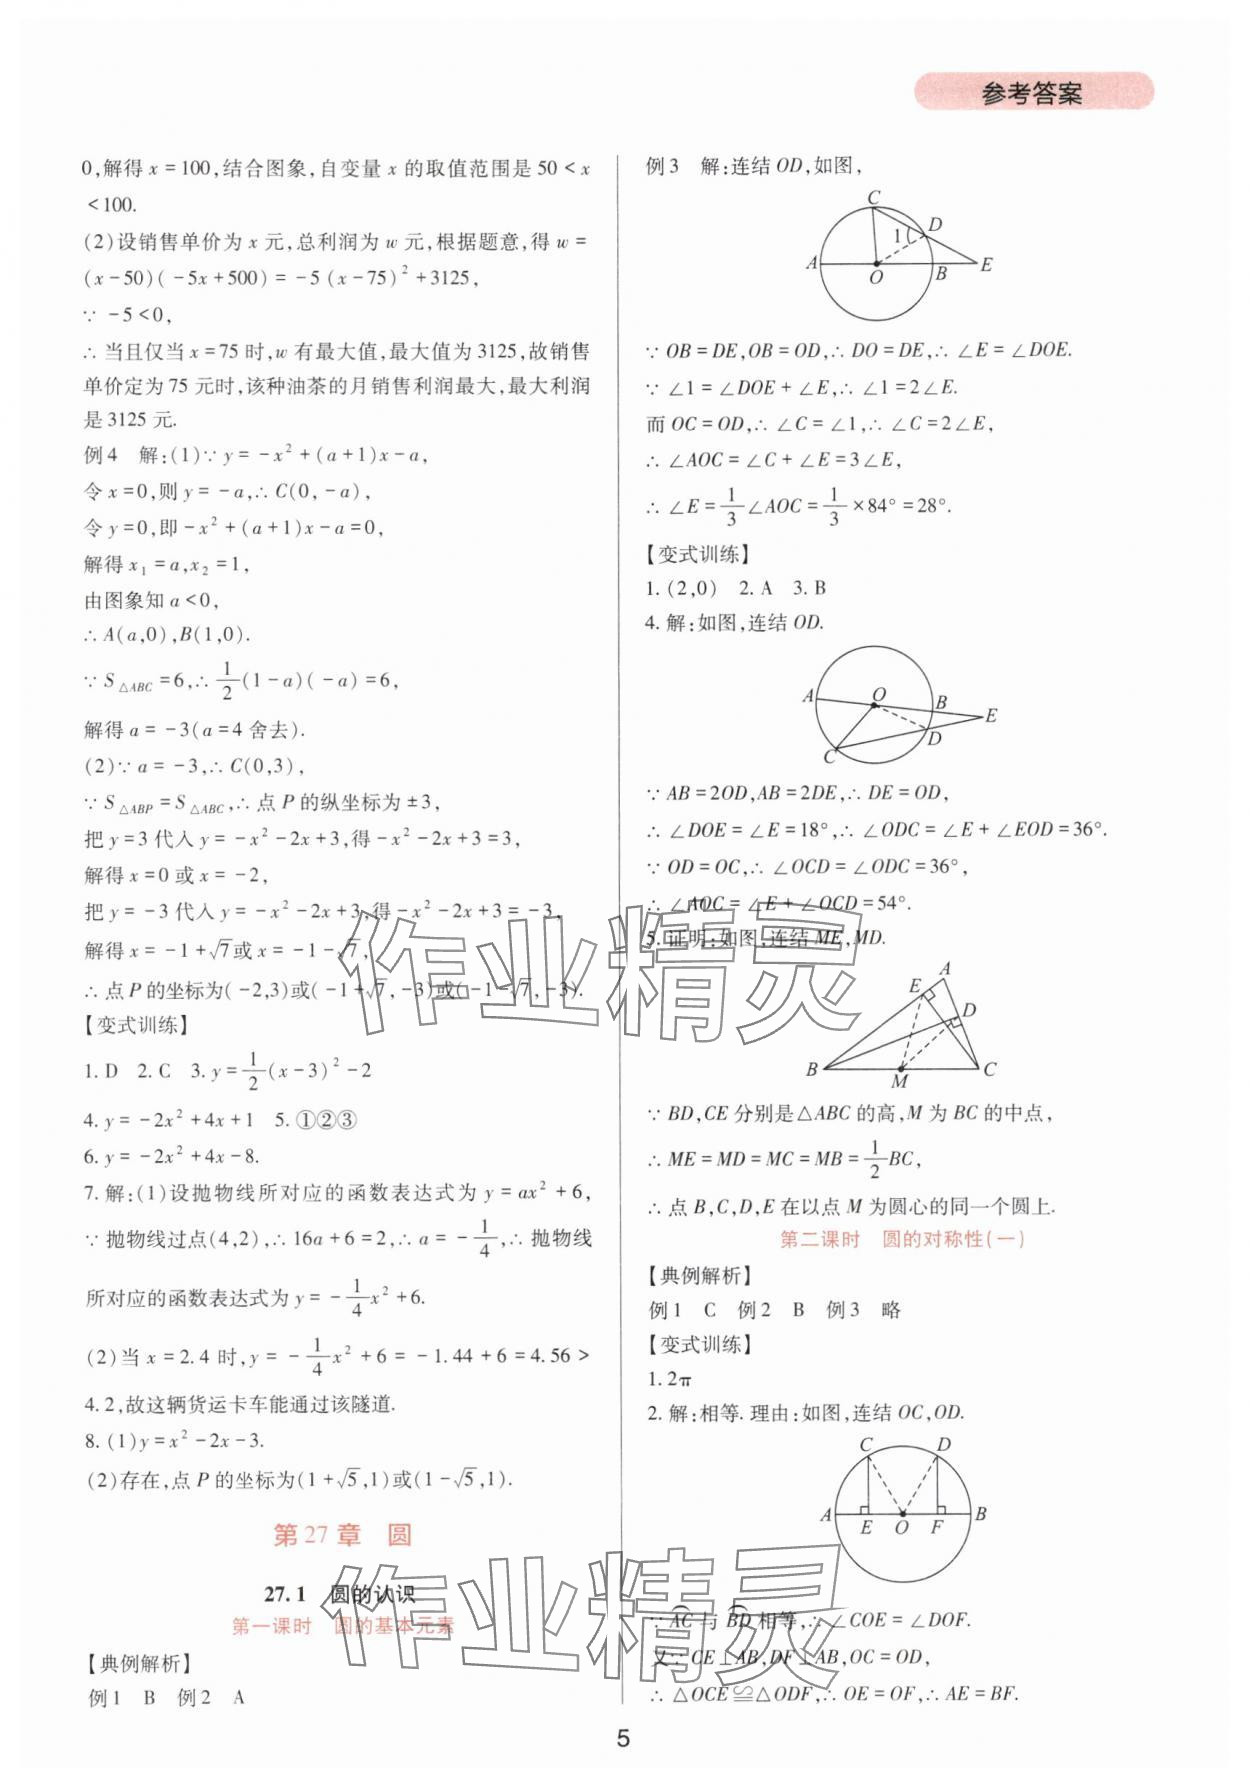 参考答案
0,解得 x=100,结合图象,自变量 x 的取值范围是 50<x
<100.
(2)设销售单价为 x 元,总利润为 w 元,根据题意,得 w=
(x-50)(-5x+500)=-5(x-75)²+3125,
∵ -5<0,
∴ 当且仅当 x=75 时,w 有最大值,最大值为 3125,故销售
单价定为 75 元时,该种油茶的月销售利润最大,最大利润
是 3125 元.
例4 解:(1)∵ y=-x²+(a+1)x-a,
令 x=0,则 y=-a,∴ C(0,-a),
令 y=0,即-x²+(a+1)x-a=0,
解得 x₁=a,x₂=1,
由图象知 a<0,
∴ A(a,0),B(1,0).
∵ S△ABC=6,∴ 1/2(1-a)(-a)=6,
解得 a=-3(a=4 舍去).
(2)∵ a=-3,∴ C(0,3),
∵ S△ABP=S△ABC,∴ 点 P 的纵坐标为±3,
把 y=3 代入 y=-x²-2x+3,得-x²-2x+3=3,
解得 x=0 或 x=-2,
把 y=-3 代入 y=-x²-2x+3,得-x²-2x+3=-3,
解得 x=-1+√7或 x=-1-√7,
∴ 点 P 的坐标为(-2,3)或(-1+√7,-3)或(-1-√7,-3).
【变式训练】
1. D 2. C 3. y=1/2(x-3)²-2
4. y=-2x²+4x+1 5. ①②③
6. y=-2x²+4x-8.
7. 解:(1)设抛物线所对应的函数表达式为 y=ax²+6,
∵ 抛物线过点(4,2),∴ 16a+6=2,∴ a=-1/4,∴ 抛物线
所对应的函数表达式为 y=-1/4x²+6.
(2)当 x=2.4 时,y=-1/4x²+6=-1.44+6=4.56>
4.2,故这辆货运卡车能通过该隧道.
8. (1)y=x²-2x-3.
(2)存在,点 P 的坐标为(1+√5,1)或(1-√5,1).
第 27 章 圆
27.1 圆的认识
第一课时 圆的基本元素
【典例解析】
例1 B 例2 A
例3 解:连结 OD,如图,
C
D
1
A
O
B
E
∵ OB=DE,OB=OD,∴ DO=DE,∴ ∠E=∠DOE.
∵ ∠1=∠DOE+∠E,∴ ∠1=2∠E.
而 OC=OD,∴ ∠C=∠1,∴ ∠C=2∠E,
∴ ∠AOC=∠C+∠E=3∠E,
∴ ∠E=1/3∠AOC=1/3×84°=28°.
【变式训练】
1. (2,0) 2. A 3. B
4. 解:如图,连结 OD.
A
O
B
E
D
C
∵ AB=2OD,AB=2DE,∴ DE=OD,
∴ ∠DOE=∠E=18°,∴ ∠ODC=∠E+∠EOD=36°.
∵ OD=OC,∴ ∠OCD=∠ODC=36°,
∴ ∠AOC=∠E+∠OCD=54°.
5. 证明:如图,连结 ME,MD.
A
E
D
B
M
C
∵ BD,CE 分别是△ABC 的高,M 为 BC 的中点,
∴ ME=MD=MC=MB=1/2BC,
∴ 点 B,C,D,E 在以点 M 为圆心的同一个圆上.
第二课时 圆的对称性(一)
【典例解析】
例1 C 例2 B 例3 略
【变式训练】
1. 2π
2. 解:相等. 理由:如图,连结 OC,OD.
C
D
A
E
O
F
B
∵ A͡C 与 B͡D 相等,∴ ∠COE=∠DOF.
又∵ CE⊥AB,DF⊥AB,OC=OD,
∴ △OCE≌△ODF,∴ OE=OF,∴ AE=BF.
5
作业精灵
作业精灵